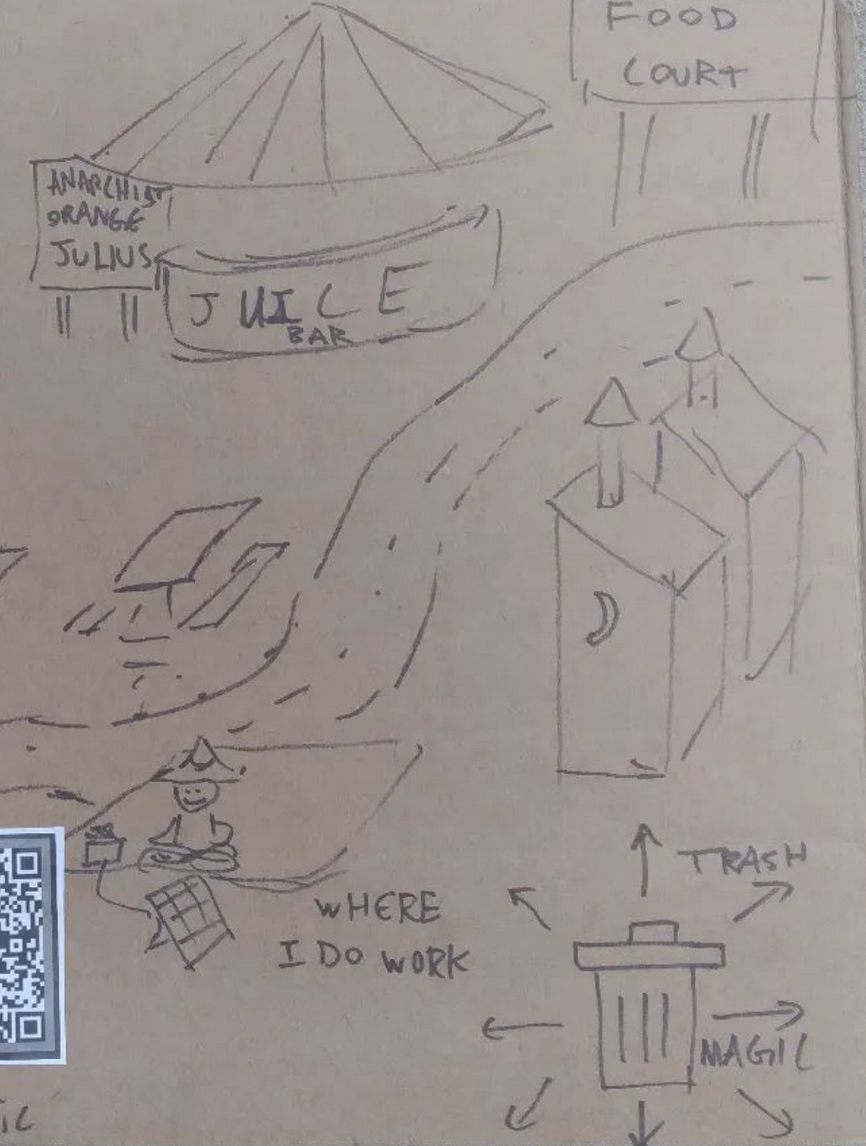 FOOD
COURT
ANARCHIST
ORANGE
JULIUS
JUICE
BAR
WHERE
I DO WORK
TRASH
MAGIC